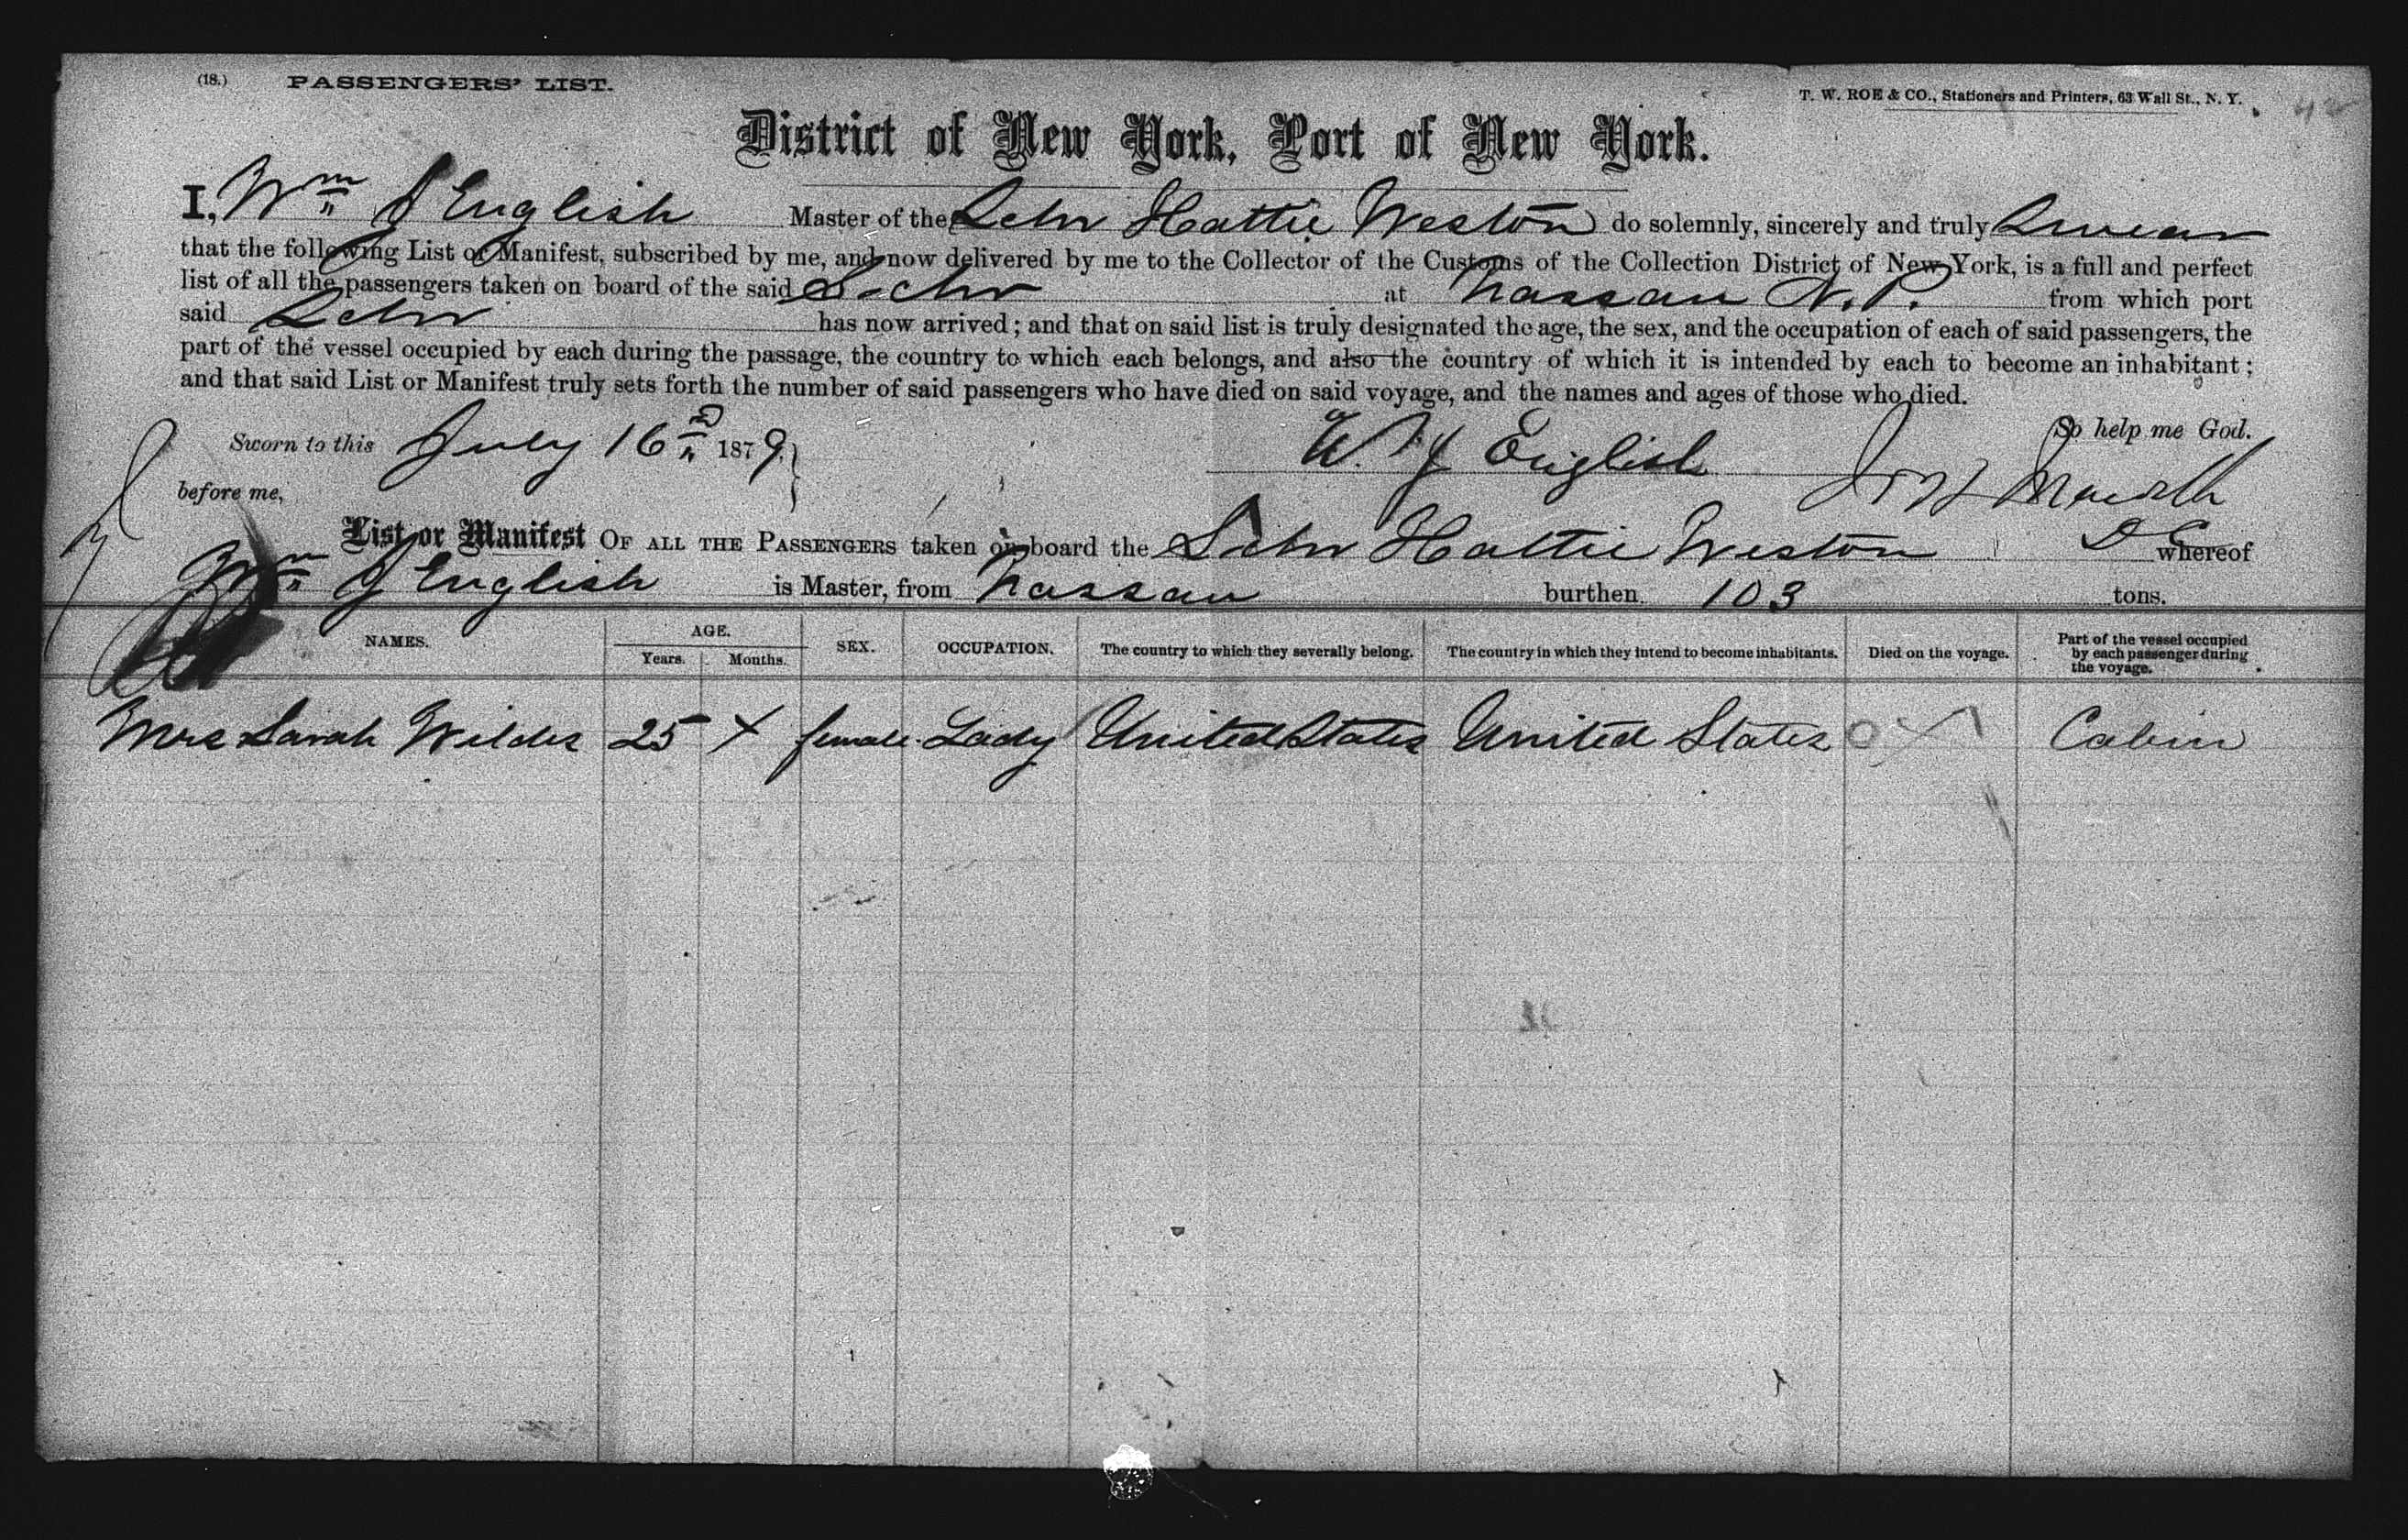 (18.) PASSENGERS' LIST.
T. W. ROE & CO., Stationers and Printers, 63 Wall St., N. Y.
District of New York, Port of New York.
I, Wm J English Master of the Schr Hattie Weston do solemnly, sincerely and truly Swear
that the following List or Manifest, subscribed by me, and now delivered by me to the Collector of the Customs of the Collection District of New York, is a full and perfect
list of all the passengers taken on board of the said Schr at Nassau N. P. from which port
said Schr has now arrived; and that on said list is truly designated the age, the sex, and the occupation of each of said passengers, the
part of the vessel occupied by each during the passage, the country to which each belongs, and also the country of which it is intended by each to become an inhabitant;
and that said List or Manifest truly sets forth the number of said passengers who have died on said voyage, and the names and ages of those who died.
So help me God.
Sworn to this July 16 1879. W. J English
before me,
List or Manifest OF ALL THE PASSENGERS taken on board the Schr Hattie Weston whereof
Wm J English is Master, from Nassau burthen 103 tons.
NAMES. AGE. Years. Months. SEX. OCCUPATION. The country to which they severally belong. The country in which they intend to become inhabitants. Died on the voyage. Part of the vessel occupied by each passenger during the voyage.
Mrs Sarah Wildes 25 X female Lady United States United States Cabin